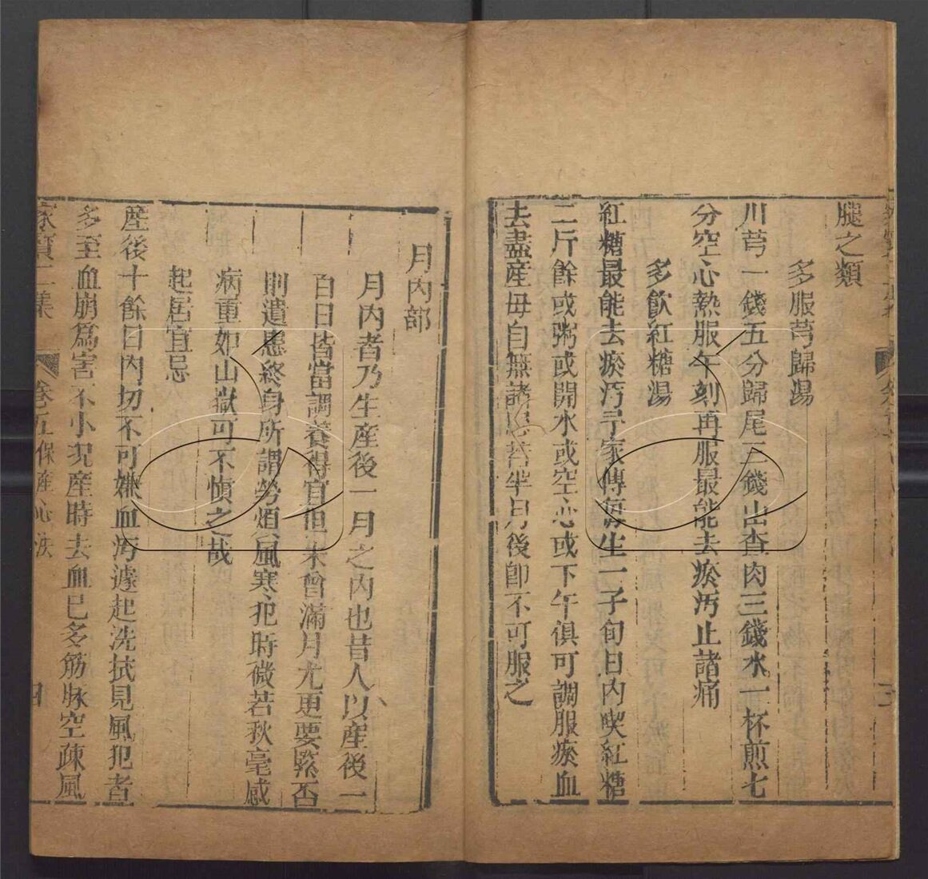 腿之類
多服芎歸湯
川芎一錢五分歸尾三錢山查肉三錢水一杯煎七
分空心熱服午刻再服最能去瘀汚止諸痛
多飲紅糖湯
紅糖最能去瘀汚予家傳每生一子旬日內喫紅糖
二斤餘或粥或開水或空心或下午俱可調服瘀血
去盡產母自無諸患若半月後即不可服之
月內部
月內者乃生產後一月之內也昔人以產後一
百日皆當調養得宜但未曾滿月尤更要緊否
則遺患終身所謂勞煩風寒犯時微若秋毫感
病重如山嶽可不慎之哉
起居宜忌
產後十餘日內切不可嫌血汚遽起洗拭見風犯者
多至血崩爲害不小況產時去血已多筋脉空疎風
家寶二集 卷五保產心法 四